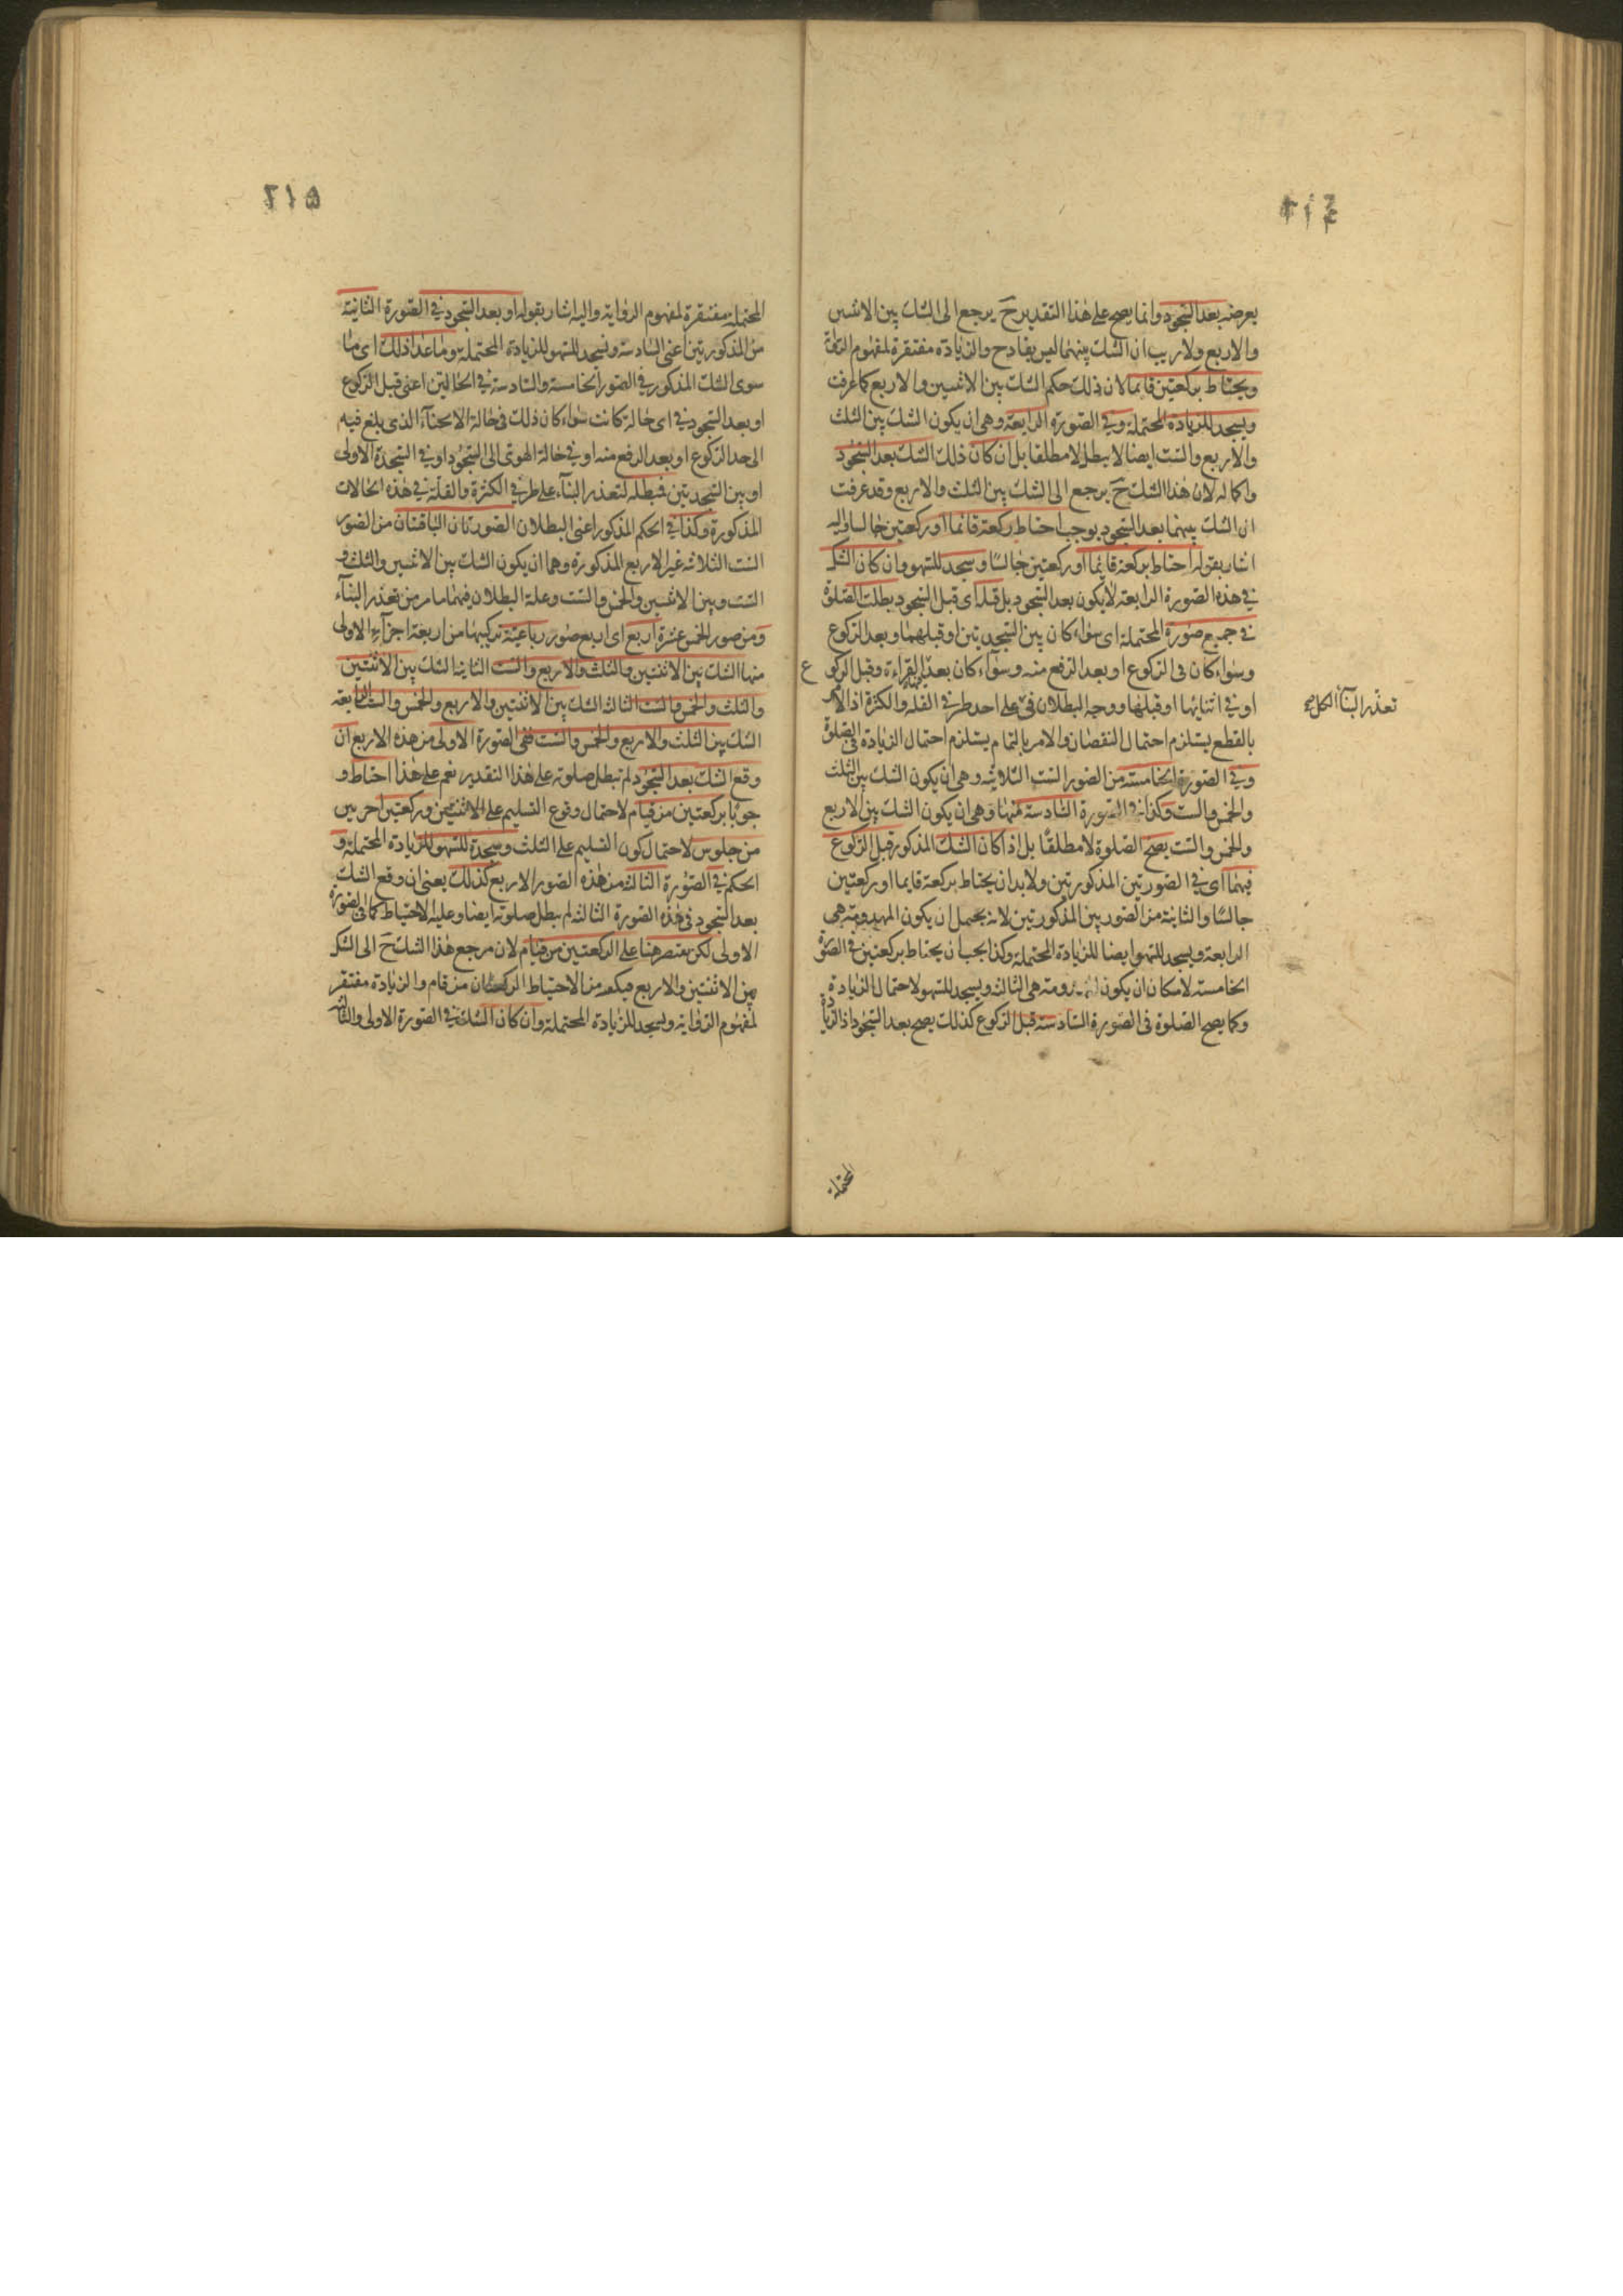 ٤١٤
يعرضه بعد السجود وانما يصح على هذا التقدير ح يرجع الى الشك بين الاثنين
والاربع ولا ريب ان الشك بينهما ليس بقادح والزيادة مفتقرة لمفهوم
ويحتاط بركعتين قائما لان ذلك حكم الشك بين الاثنين والاربع كما عرفت
ويسجد للزيادة المحتملة وفي الصورة الرابعة وهى ان يكون الشك بين الثلث
والاربع والست ايضا لا يبطل لا مطلقا بل ان كان ذلك الشك بعد السجود
واكماله لان هذا الشك ح يرجع الى الشك بين الثلث والاربع وقد عرفت
ان الشك بينهما بعد السجود يوجب احتياط ركعة قائما او ركعتين جالسا واليه
اشار بقوله احتاط بركعة قائما او ركعتين جالسا وسجد للسهو وان كان الشك
في هذه الصورة الرابعة لا يكون بعد السجود بل قبله اى قبل السجود بطلت الصلوة
في جميع صوره المحتملة اى سواء كان بين السجدتين او قبلهما وبعد الركوع
وسواء كان فى الركوع او بعد الرفع منه وسواء كان بعد القراءة وقبل الركوع
او في اثنائها او قبلها ووجه البطلان على احد طرفي القلة والكثرة اذ الامر
تعذر البناء
بالقطع يستلزم احتمال النقصان والامر بالتمام يستلزم احتمال الزيادة فى الصلوة
وفي الصورة الخامسة من الصور الست الثلاثيه وهى ان يكون الشك بين الثلث
والخمس والست وكذا في الصورة السادسة منها وهى ان يكون الشك بين الاربع
والخمس والست يصح الصلوة لا مطلقا بل اذا كان الشك المذكور قبل الركوع
فيهما اى في الصورتين المذكورتين ولا بد ان يحتاط بركعة قايما او ركعتين
جالسا والثانية من الصورتين المذكورتين لانه يحتمل ان يكون المهدومة هى
الرابعة ويسجد للسهو ايضا للزيادة المحتملة وكذا يجب ان يحتاط بركعتين في الصورة
الخامسة لامكان ان يكون المهدومة هى الثالثه ويسجد للسهو لاحتمال الزيادة
وكما يصح الصلوة فى الصورة السادسة قبل الركوع كذلك يصح بعد السجود اذ الزيادة
المحتملة
٤١٥
المحتملة مفتقرة لمفهوم الرواية واليه اشار بقوله او بعد السجود في الصورة الثانية
من المذكورتين اعنى السادسة ويسجد للسهو للزيادة المحتملة وما عدا ذلك اى ما
سوى الشك المذكور في الصور الخامسة والسادسة في الحالتين اعنى قبل الركوع
او بعد السجود في اى حالة كانت سواء كان ذلك فى حالة الانحناء الذى بلغ فيه
الى حد الركوع او بعد الرفع منه او في حالة الهوى الى السجود او في السجدة الاولى
او بين السجدتين فبطله لتعذر البناء على طرفي الكثرة والقلة في هذه الحالات
المذكورة وكذا في الحكم المذكور اعنى البطلان الصورتان الباقيتان من الصور
الست الثلاثه غير الاربع المذكورة وهما ان يكون الشك بين الاثنين والثلث و
الست وبين الاثنين والخمس والست وعلة البطلان فيهما ما مر من تعذر البناء
ومن صور الخمس عشرة اربع اى اربع صور رباعية تركيبها من اربعة اجزاء الاولى
منها الشك بين الاثنتين والثلث والاربع والست الثانية الشك بين الاثنتين
والثلث والخمس والست الثالثة الشك بين الاثنتين والاربع والخمس والست الرابعة
الشك بين الثلث والاربع والخمس والست ففى الصورة الاولى من هذه الاربع ان
وقع الشك بعد السجود لم تبطل صلوته على هذا التقدير نعم على هذا احتاط و
جوبا بركعتين من قيام لاحتمال وقوع التسليم على الاثنتين وركعتين اخريين
من جلوس لاحتمال كون التسليم على الثلث وسجدة للسهو للزيادة المحتملة و
الحكم في الصورة الثالثة من هذه الصور الاربع كذلك بعنى ان وقع الشك
بعد السجود فى هذه الصورة الثالثه لم يبطل صلوته ايضا وعليه الاحتياط كما فى الصورة
الاولى لكن يقتصر هنا على الركعتين من قيام لان مرجع هذا الشك ح الى الشك
بين الاثنتين والاربع فيكفيه من الاحتياط الركعتان من قيام والزيادة مفتقرة
لمفهوم الرواية ويسجد للزيادة المحتملة وان كان الشك في الصورة الاولى والثالثه